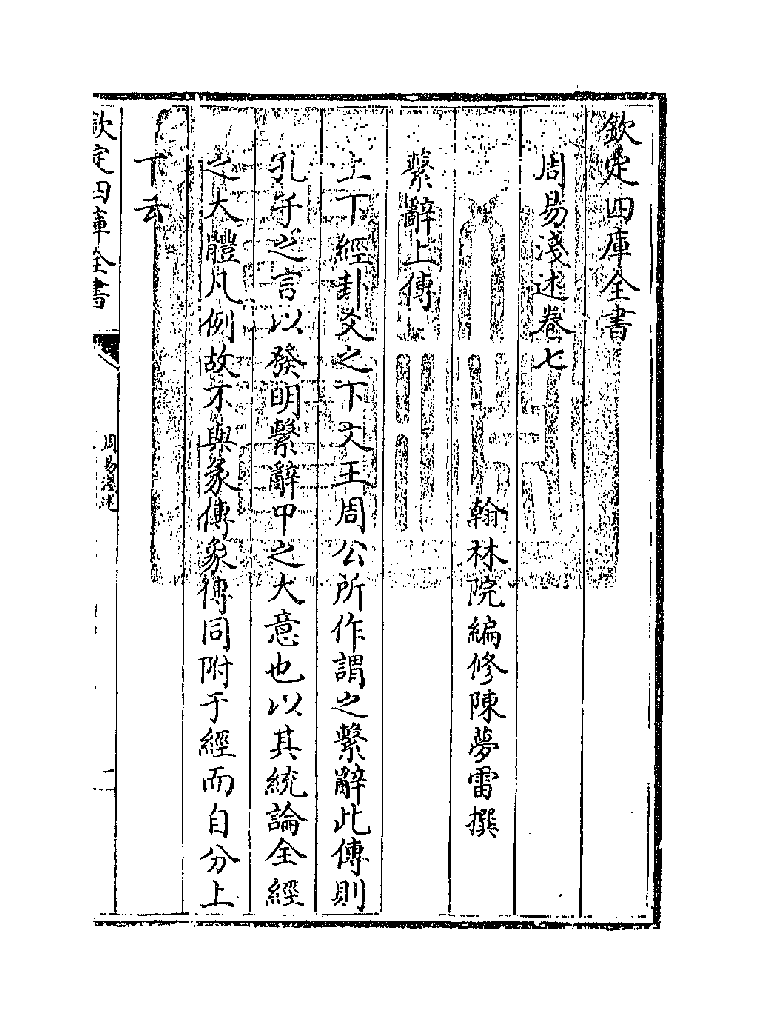 欽定四庫全書
周易淺述卷七
翰林院編修陳夢雷撰
繫辭上傳
上下經卦爻之下文王周公所作謂之繫辭此傳則
孔子之言以發明繫辭中之大意也以其統論全經
之大體凡例故不與彖傳象傳同附于經而自分上
下云
欽定四庫全書
周易淺述